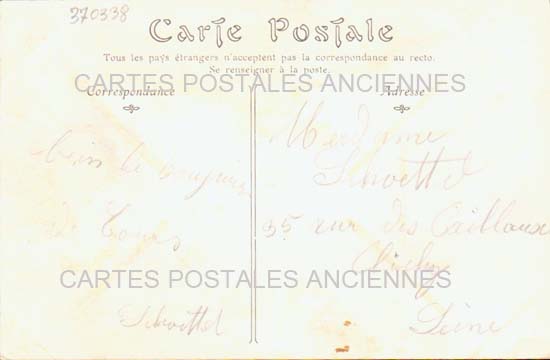 370338
Carte Postale
Tous les pays étrangers n'acceptent pas la correspondance au recto.
Se renseigner à la poste.
CARTES POSTALES ANCIENNES
Correspondance
Adresse
Madame
Schoettel
35 rue des Cailloux
Clichy
Seine
de Tours
Schoettel
CARTES POSTALES ANCIENNES